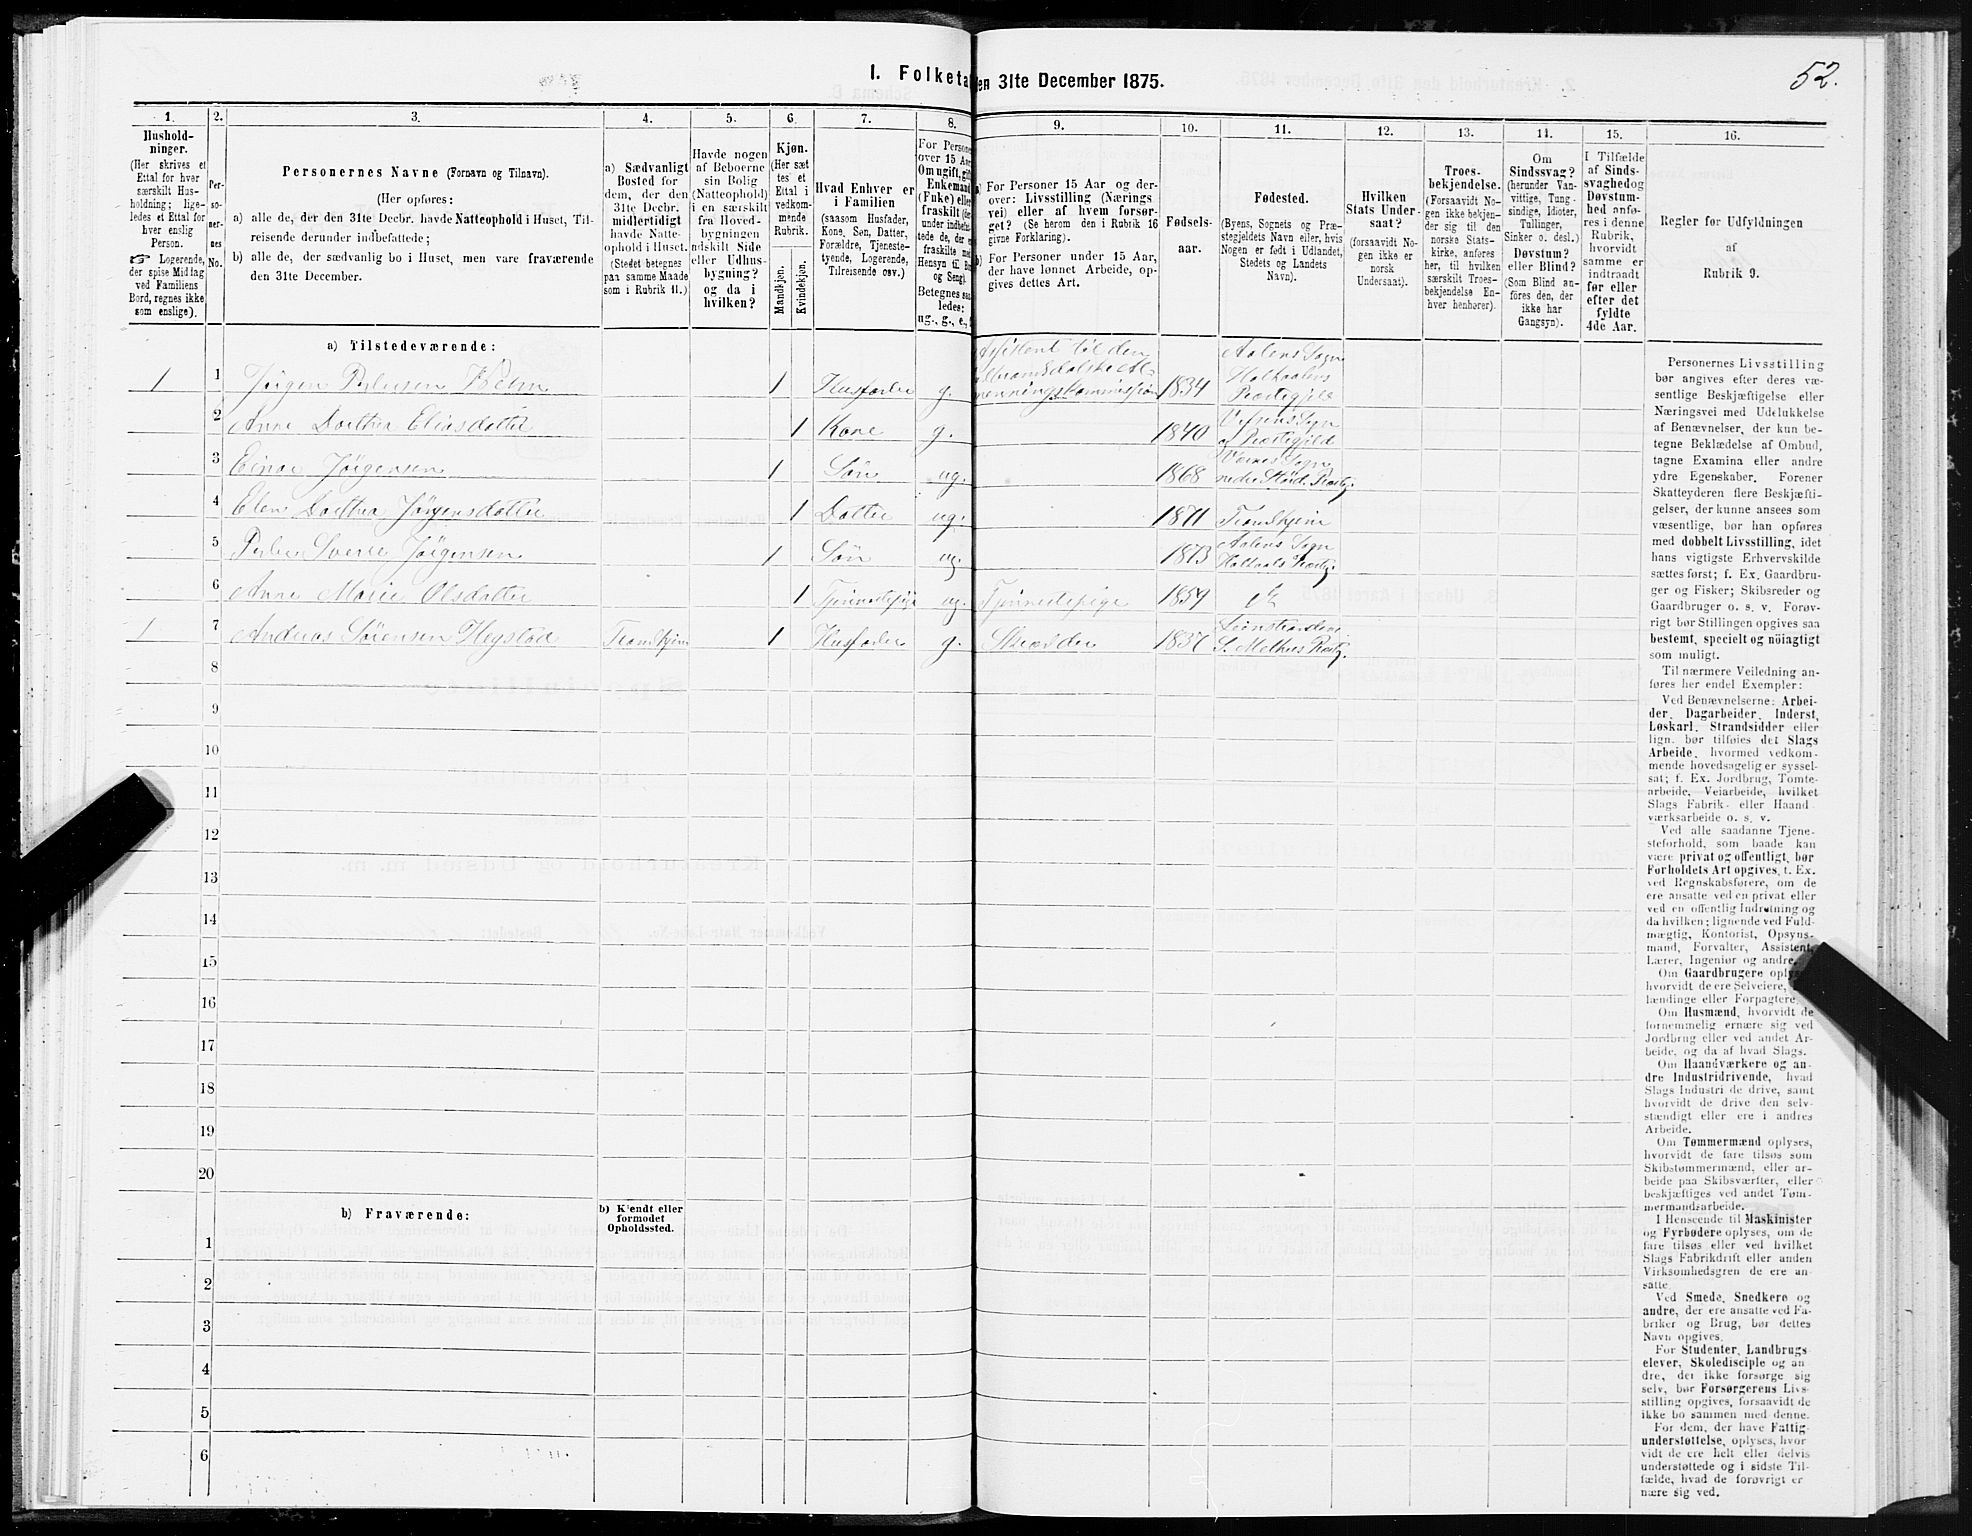 52.
I. Folketa
en 31te December 1875.
1.
Hushold-
ninger.
(Her skrives et
Ettal for hver
særskilt Hus-
holdning; lige-
ledes et Ettal for
hver enslig
Person.
☞ Logerende,
der spise Middag
ved Familiens
Bord, regnes ikke
som enslige).
2.
Per-
so-
ner-
nes
No.
3.
Personernes Navne (Fornavn og Tilnavn).
(Her opføres:
a) alle de, der den 31te Decbr. havde Natteophold i Huset, Til-
reisende derunder indbefattede;
b) alle de, der sædvanlig bo i Huset, men vare fraværende
den 31te December.
4.
a) Sædvanligt
Bosted for
dem, der den
31te Decbr.
midlertidigt
havde Natte-
ophold i Huset.
(Stedet betegnes
paa samme Maade
som i Rubrik 11.)
5.
Havde nogen
af Beboerne
sin Bolig
(Natteophold)
i en særskilt
fra Hoved-
bygningen
adskilt Side
eller Udhus-
bygning?
og da i
hvilken?
6.
Kjøn.
(Her sæt
tes et
Ettal i
vedkom-
mende
Rubrik.
Mandkjøn.
Kvindekjøn.
7.
Hvad Enhver er
i Familien
(saasom Husfader,
Kone, Søn, Datter,
Forældre, Tjeneste-
tyende, Logerende,
Tilreisende osv.)
8.
For Persone
over 15 Aar
Om ugift, gift
Enkemand
(Enke) eller
fraskilt (de
under indbefat
tede de, der e
fraskilte med
Hensyn til Bo
og Seng).
Betegnes saa
ledes:
ug., g., e.,
9.
a) For Personer 15 Aar og der-
over: Livsstilling (Nærings
vei) eller af hvem forsør-
get? (Se herom den i Rubrik 16
givne Forklaring).
b) For Personer under 15 Aar,
der have lønnet Arbeide, op-
gives dettes Art.
10.
Fødsels-
aar.
11.
Fødested.
(Byens, Sognets og Præ-
stegjeldets Navn eller, hvis
Nogen er født i Udlandet,
Stedets og Landets
Navn).
12.
Hvilken
Stats Under-
saat?
(forsaavidt No-
gen ikke er
norsk
Undersaat).
13.
Troes-
bekjendelse.
(Forsaavidt No-
gen ikke bekjen-
der sig til den
norske Stats-
kirke, anføres
her, til hvilken
særskilt Troes-
bekjendelse En-
hver henhører).
14.
Om
Sindssvag?
(herunder Van-
vittige, Tung-
sindige, Idioter,
Tullinger,
Sinker o. desl.)
Døvstum?
eller Blind?
(Som Blind an-
føres den, der
ikke har
Gangsyn).
15.
I Tilfælde
af Sinds-
svaghed og
Døvstum-
hed anfø-
res i denne
Rubrik,
hvorvidt
samme er
indtraadt
før eller
efter det
fyldte
4de Aar.
16.
Regler før Udfyldningen
af
Rubrik 9.
a) Tilstedeværende:
1 1 Jørgen Pedersen Holm 1 Husfader g. Assistent til den 1834 Aalens Sogn
Holtaalens
Præstegjeld
2 Anne Dorthea Eliasdatter 1 Kone g. 1840
3 Einar Jørgensen 1 Søn ug. 1868
4 Elen Dorthea Jørgensdatter 1 Datter ug. 1871 Trondhjem
5 Peder Sverre Jørgensen 1 Søn ug. 1873 Aalens Sogn
6 Anne Marie Olsdatter 1 Tjenestepige ug. Tjenestepige 1859
1 7 Andreas Sørensen Hegstad Trondhjem 1 Husfader g. Skrædder 1837
8
9
10
11
12
13
14
15
16
17
18
19
20
b) Fraværende:
b) Kjendt eller
formodet
Opholdssted.
1
2
3
4
5
6
Personernes Livsstilling
bør angives efter deres væ-
sentlige Beskjæftigelse eller
Næringsvei med Udelukkelse
af Benævnelser, der kun be-
tegne Beklædelse af Ombud,
tagne Examina eller andre
ydre Egenskaber. Forener
Skatteyderen flere Beskjæfti-
gelser, der kunne ansees som
væsentlige, bør han opføres
med dobbelt Livsstilling, idet
hans vigtigste Erhvervskilde
sættes først; f. Ex. Gaardbru-
ger og Fisker; Skibsreder og
Gaardbruger o. s. v. Forøv-
rigt bør Stillingen opgives saa
bestemt, specielt og nöiagtigt
som muligt.
Til nærmere Veiledning an-
føres her endel Exempler:
Ved Benævnelserne: Arbei-
der, Dagarbeider, Inderst,
Løskarl, Strandsidder eller
lign. bør tilføies det Slags
Arbeide, hvormed vedkom-
mende hovedsagelig er syssel-
sat; f. Ex. Jordbrug, Tomte-
arbeide, Veiarbeide, hvilket
Slags Fabrik- eller Haand-
værksarbeide o. s. v.
Ved alle saadanne Tjene-
steforhold, som baade kan
være privat og offentligt, bør
Forholdets Art opgives, f. Ex.
ved Regnskabsførere, om de
ere ansatte ved en privat eller
ved en offentlig Indretning og
da hvilken; lignende ved Fuld-
mægtig, Kontorist, Opsyns-
mand, Forvalter, Assistent,
Lærer, Ingeniør og andre.
Om Gaardbrugere oplyses
hvorvidt de ere Selveiere,
lændinge eller Forpagtere,
Om Husmænd, hvorvidt de
fornemmelig ernære sig ved
Jordbrug eller ved andet Ar-
beide, og da af hvad Slags.
Om Haandværkere og an-
dre Industridrivende, hvad
Slags Industri de drive, samt
hvorvidt de drive den selv-
stændigt eller ere i andres
Arbeide.
Om Tømmermænd oplyses,
hvorvidt de fare tilsøs som
Skibstømmermænd, eller ar-
beide paa Skibsværfter, eller
beskjæftiges ved andet Tøm-
mermandsarbeide.
I Henseende til Maskinister
og Fyrbødere oplyses, om de
fare tilsøs eller ved hvilket
Slags Fabrikdrift eller anden
Virksomhedsgren de ere an-
satte.
Ved Smede, Snedkere og
andre, der ere ansatte ved Fa-
briker og Brug, bør dettes
Navn opgives.
For Studenter, Landbrugs-
elever, Skoledisciple og an
dre, der ikke forsørge sig
selv, bør Forsørgerens Livs-
stilling opgives, forsaavidt de
ikke bo sammen med denne.
For dem, der have Fattig-
understøttelse, oplyses, hvor
vidt de ere helt eller delvis
understøttede og i sidste Til-
fælde, hvad de forøvrigt er
nære sig ved.